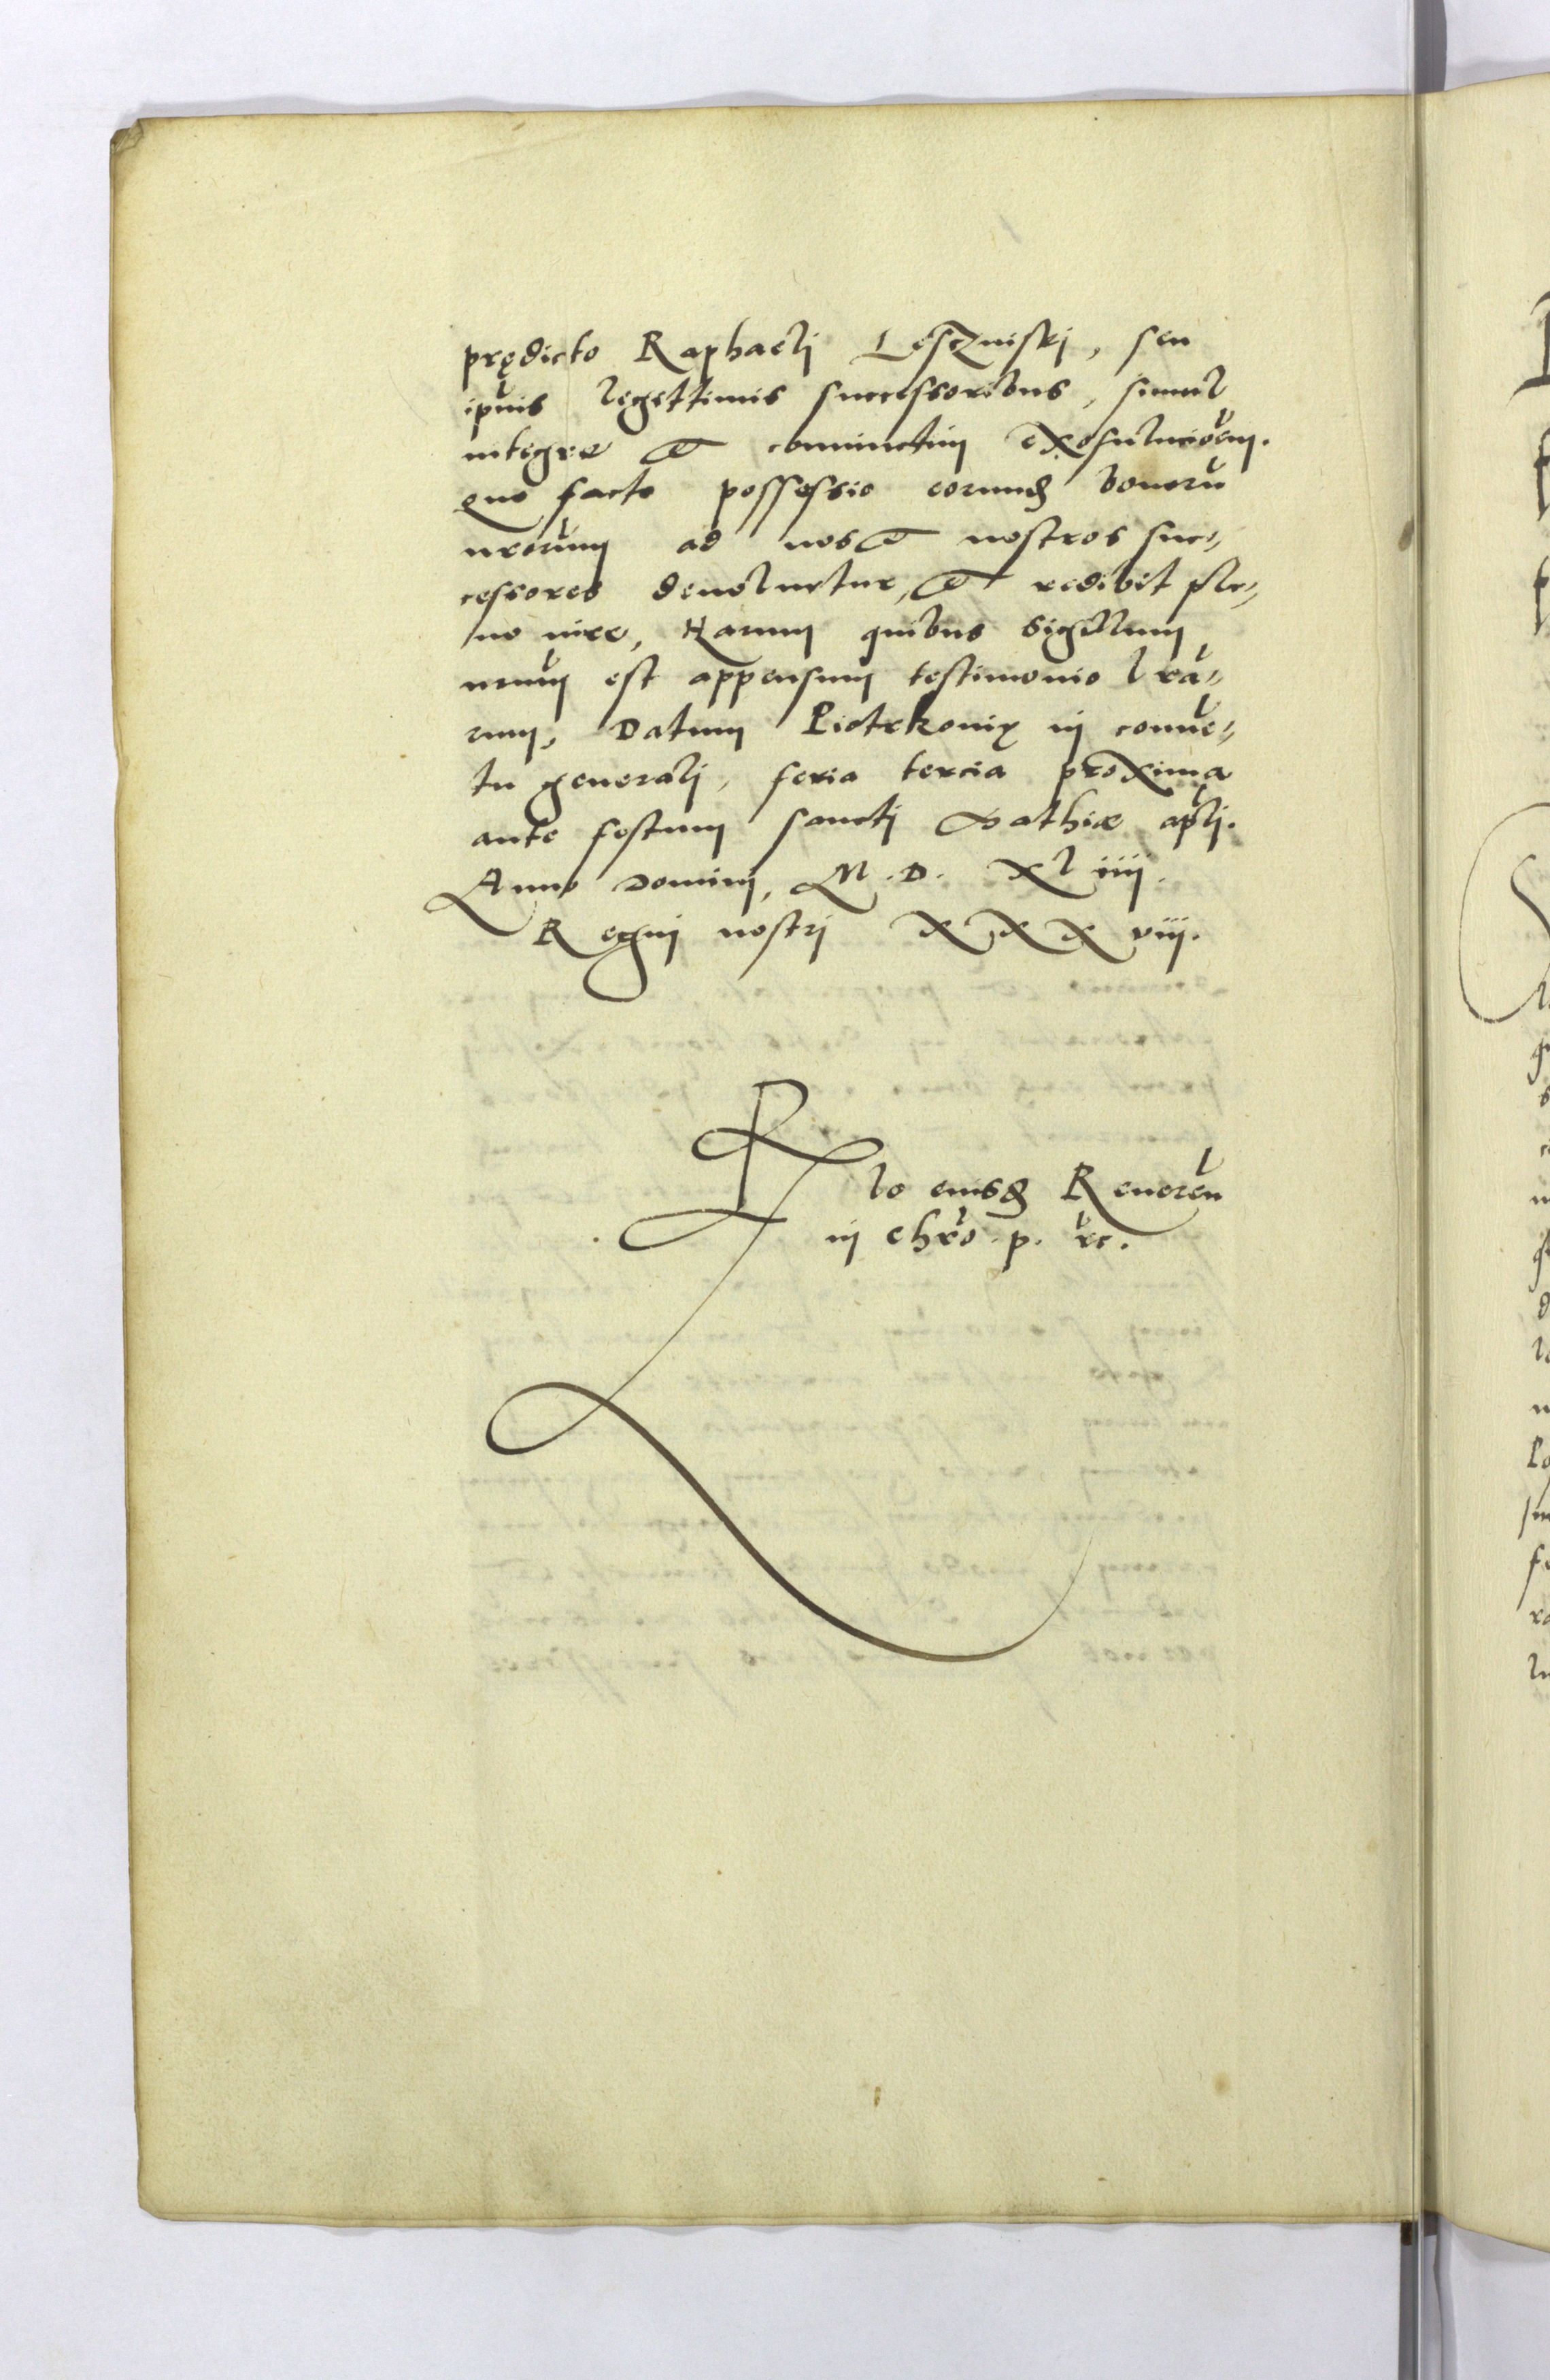 prędicto Raphaeli Lesczniski, seu
ipīus legettimis successoribus, simul
integre et coniunctim exosolucioēm.
quo facto possessio eorundē bonorū
nrōrum ad nos et nostros suc-
cessores deuoluetur, et redibit ple-
no iure, Harum quibus Sigillum
nrūm est appensum testimonio lrā-
rum, Datum Piotrkouię in conuē-
tu generali, feria tercia proxima
ante festum sancti Mathiæ apłi.
Anno Domini, M. D. XL iiij.
Regni nostri XXX viij.
Rlo eiusdē Reuerēn
in Chrō. p. rc.